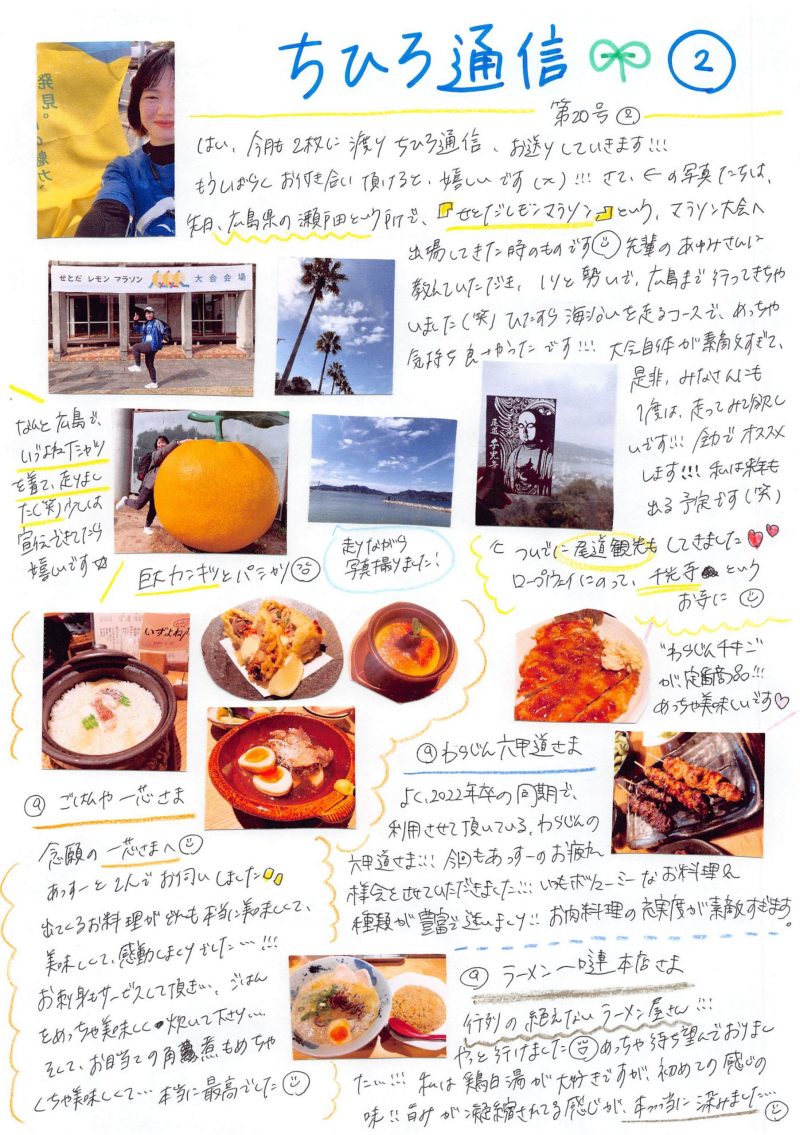 ちひろ通信 ②
第20号②
はい、今月も2枚に渡りちひろ通信、お送りしていきます!!!
もうしばらくお付き合い頂けると、嬉しいです(x)!!! さて、←の写真たちは、
先日、広島県の瀬戸田という所で、『せとだレモンマラソン』という、マラソン大会へ
出場してきた時のものです 先輩のあゆみさんに
教えていただき、ノリと勢いで、広島まで行ってきちゃ
いました(笑) ひたすら海沿いを走るコースで、めっちゃ
気持ち良かったです!!! 大会自体が素敵すぎて、
是非、みなさんにも
1度は、走ってみて欲し
いです!!! 全力でオススメ
します!!! 私は来年も
出る予定です(笑)
発見。
の魅力、
せとだ レモン マラソン 大会会場
なんと広島で、
いづよねTシャツ
を着て、走りまし
た(笑)少しは
宣伝できてたら
嬉しいです☆
巨大カンキツとパシャリ
走りながら
写真撮りました!
尾道 千光寺
ついでに尾道観光もしてきました
ロープウェイにのって、千光寺という
お寺に
いづよね
"わらじんチキン"
が、定番商品!!!
めっちゃ美味しいです♡
@ごはんや 一芯さま
念願の一芯さまへ
あっすーと2人でお伺いしました
出てくるお料理がどれも本当に美味しくて、
美味しくて、感動しまくりでした…!!!
お刺身もサービスして頂き、ごはん
をめっちゃ美味しく炊いて下さり…
そして、お目当ての角煮もめちゃ
くちゃ美味しくて… 本当に最高でした
@わらじん六甲道さま
よく、2022年卒の同期で、
利用させて頂いている、わらじんの
六甲道さま!!! 今回もあっすーのお疲れ
様会をさせていただきました!!! いつもボリューミーなお料理&
種類が豊富で迷いまくり!! お肉料理の充実度が素敵すぎます。
@ラーメン一嗹本店さま
行列の絶えないラーメン屋さん!!!
やっと行けました めっちゃ待ち望んでおりまし
た…!!! 私は鶏白湯が大好きですが、初めての感じの
味!! 旨みが凝縮されてる感じが、本っ当に深みました…